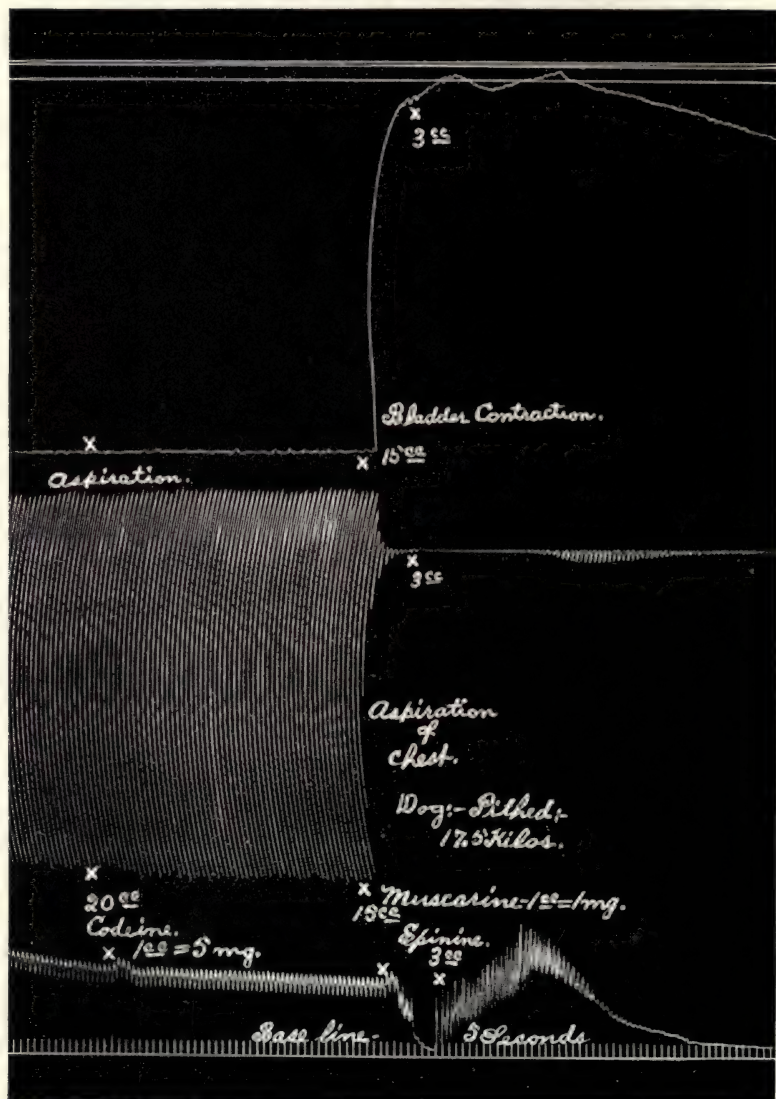 x
3 cc
Bladder Contraction.
x
x 15 cc
Aspiration.
x
3 cc
Aspiration
of
chest.
Dog:- Pithed:-
17.5 Kilos.
x
20 cc
x Muscarine-1cc=1mg.
15cc
Codeine.
Epinine.
x 1cc = 5 mg.
3 cc
x
x
Base line-
5 Seconds